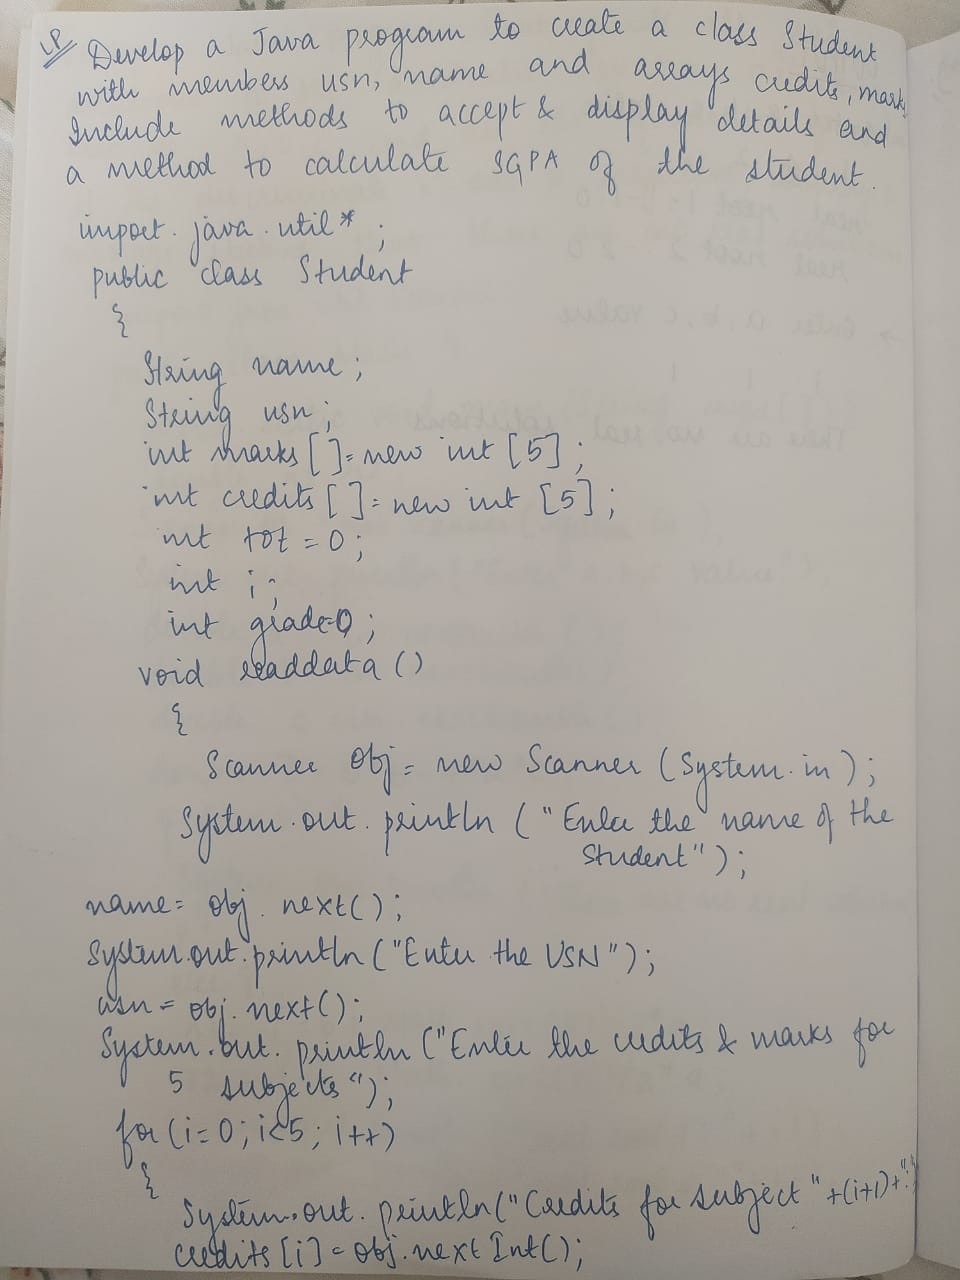 LP Develop a Java program to create a class Student
with members usn, name and arrays credits, marks
Include methods to accept & display details and
a method to calculate SGPA of the student.
import. java. util* ;
public class Student
{
String name;
String usn;
int marks [ ]= new int [5];
int credits [ ]= new int [5];
int tot = 0;
int i;
int grade=0;
void readdata ()
{
Scanner obj = new Scanner (System.in);
System.out.println ("Enter the name of the
Student");
name= obj. next();
System.out.println ("Enter the USN");
usn = obj. next();
System.out. println ("Enter the credits & marks for
5 subjects");
for (i=0; i<5; i++)
{
System.out. println("Credits for subject "+(i+1)+":")
credits [i] = obj.next Int();